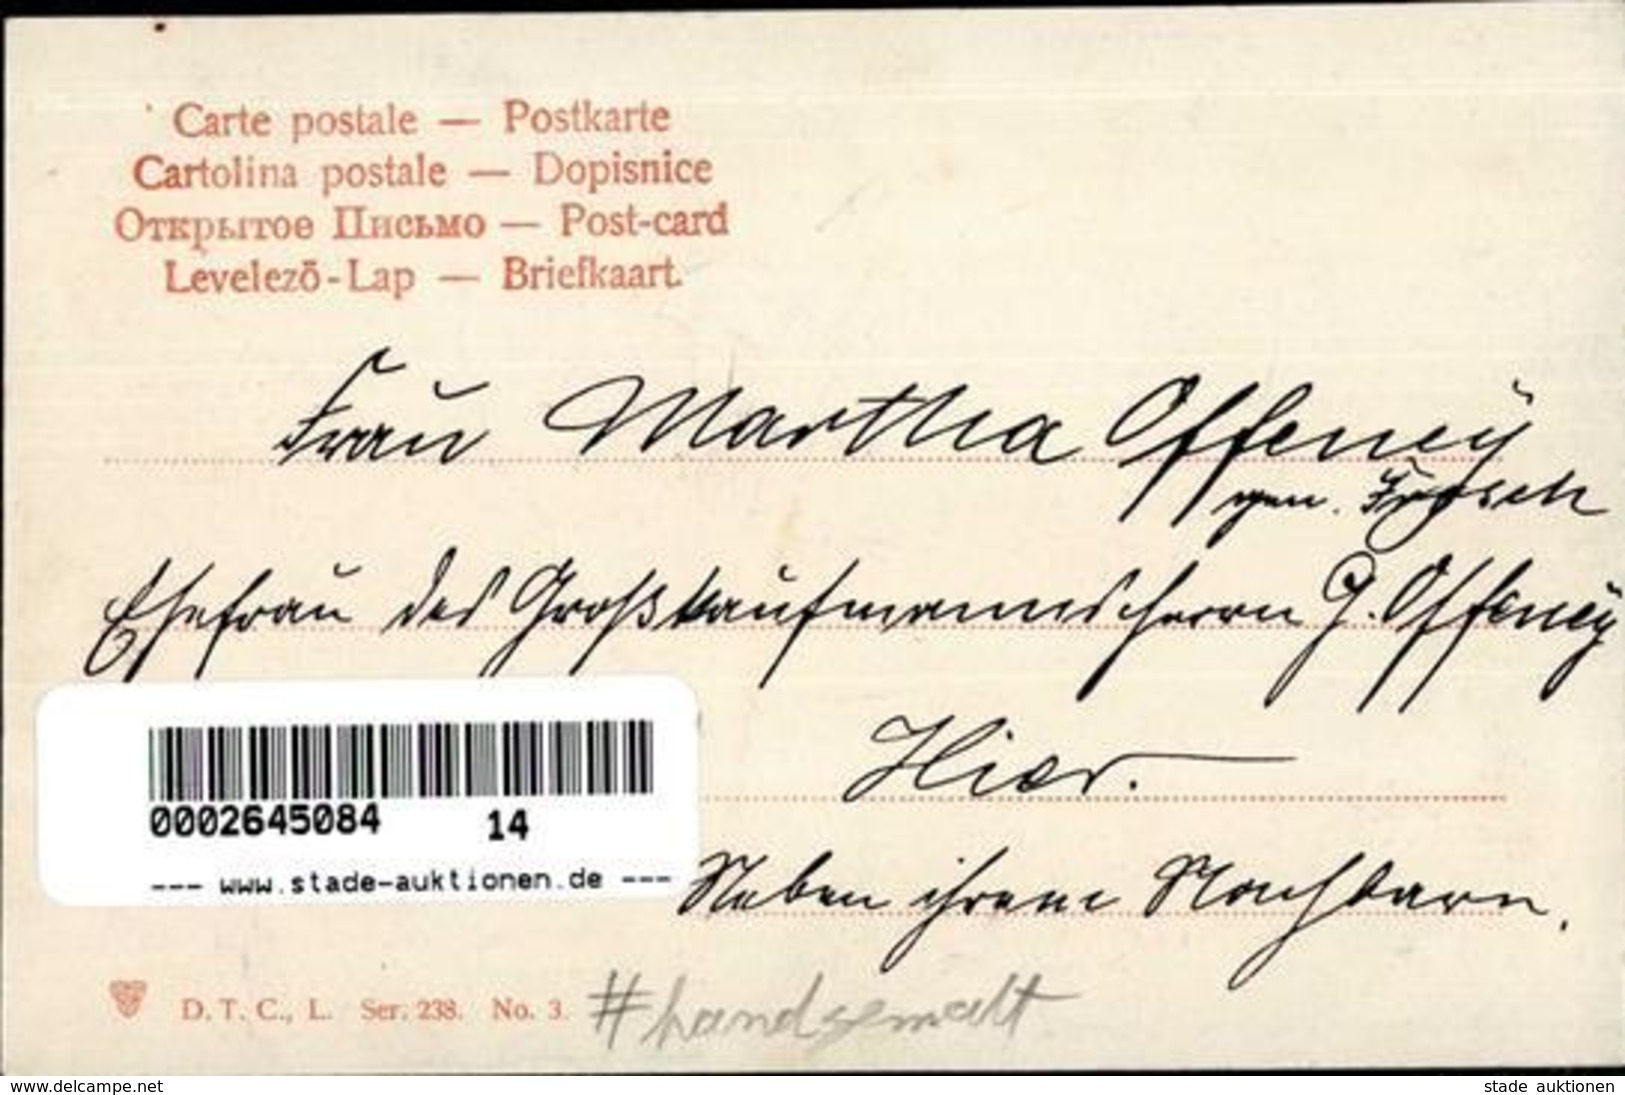 Carte postale — Postkarte
Cartolina postale — Dopisnice
Открытое Письмо — Post-card
Levelezō-Lap — Briefkaart.
Frau Martha Offeney
gen. Frosch
Ehefrau des Großkaufmannsherrn G. Offeney
Hier.
0002645084 14
--- www.stade-auktionen.de ---
Neben ihrem Nachbarn.
D. T. C., L. Ser. 238. No. 3.
#handgemalt
www.delcampe.net
stade auktionen